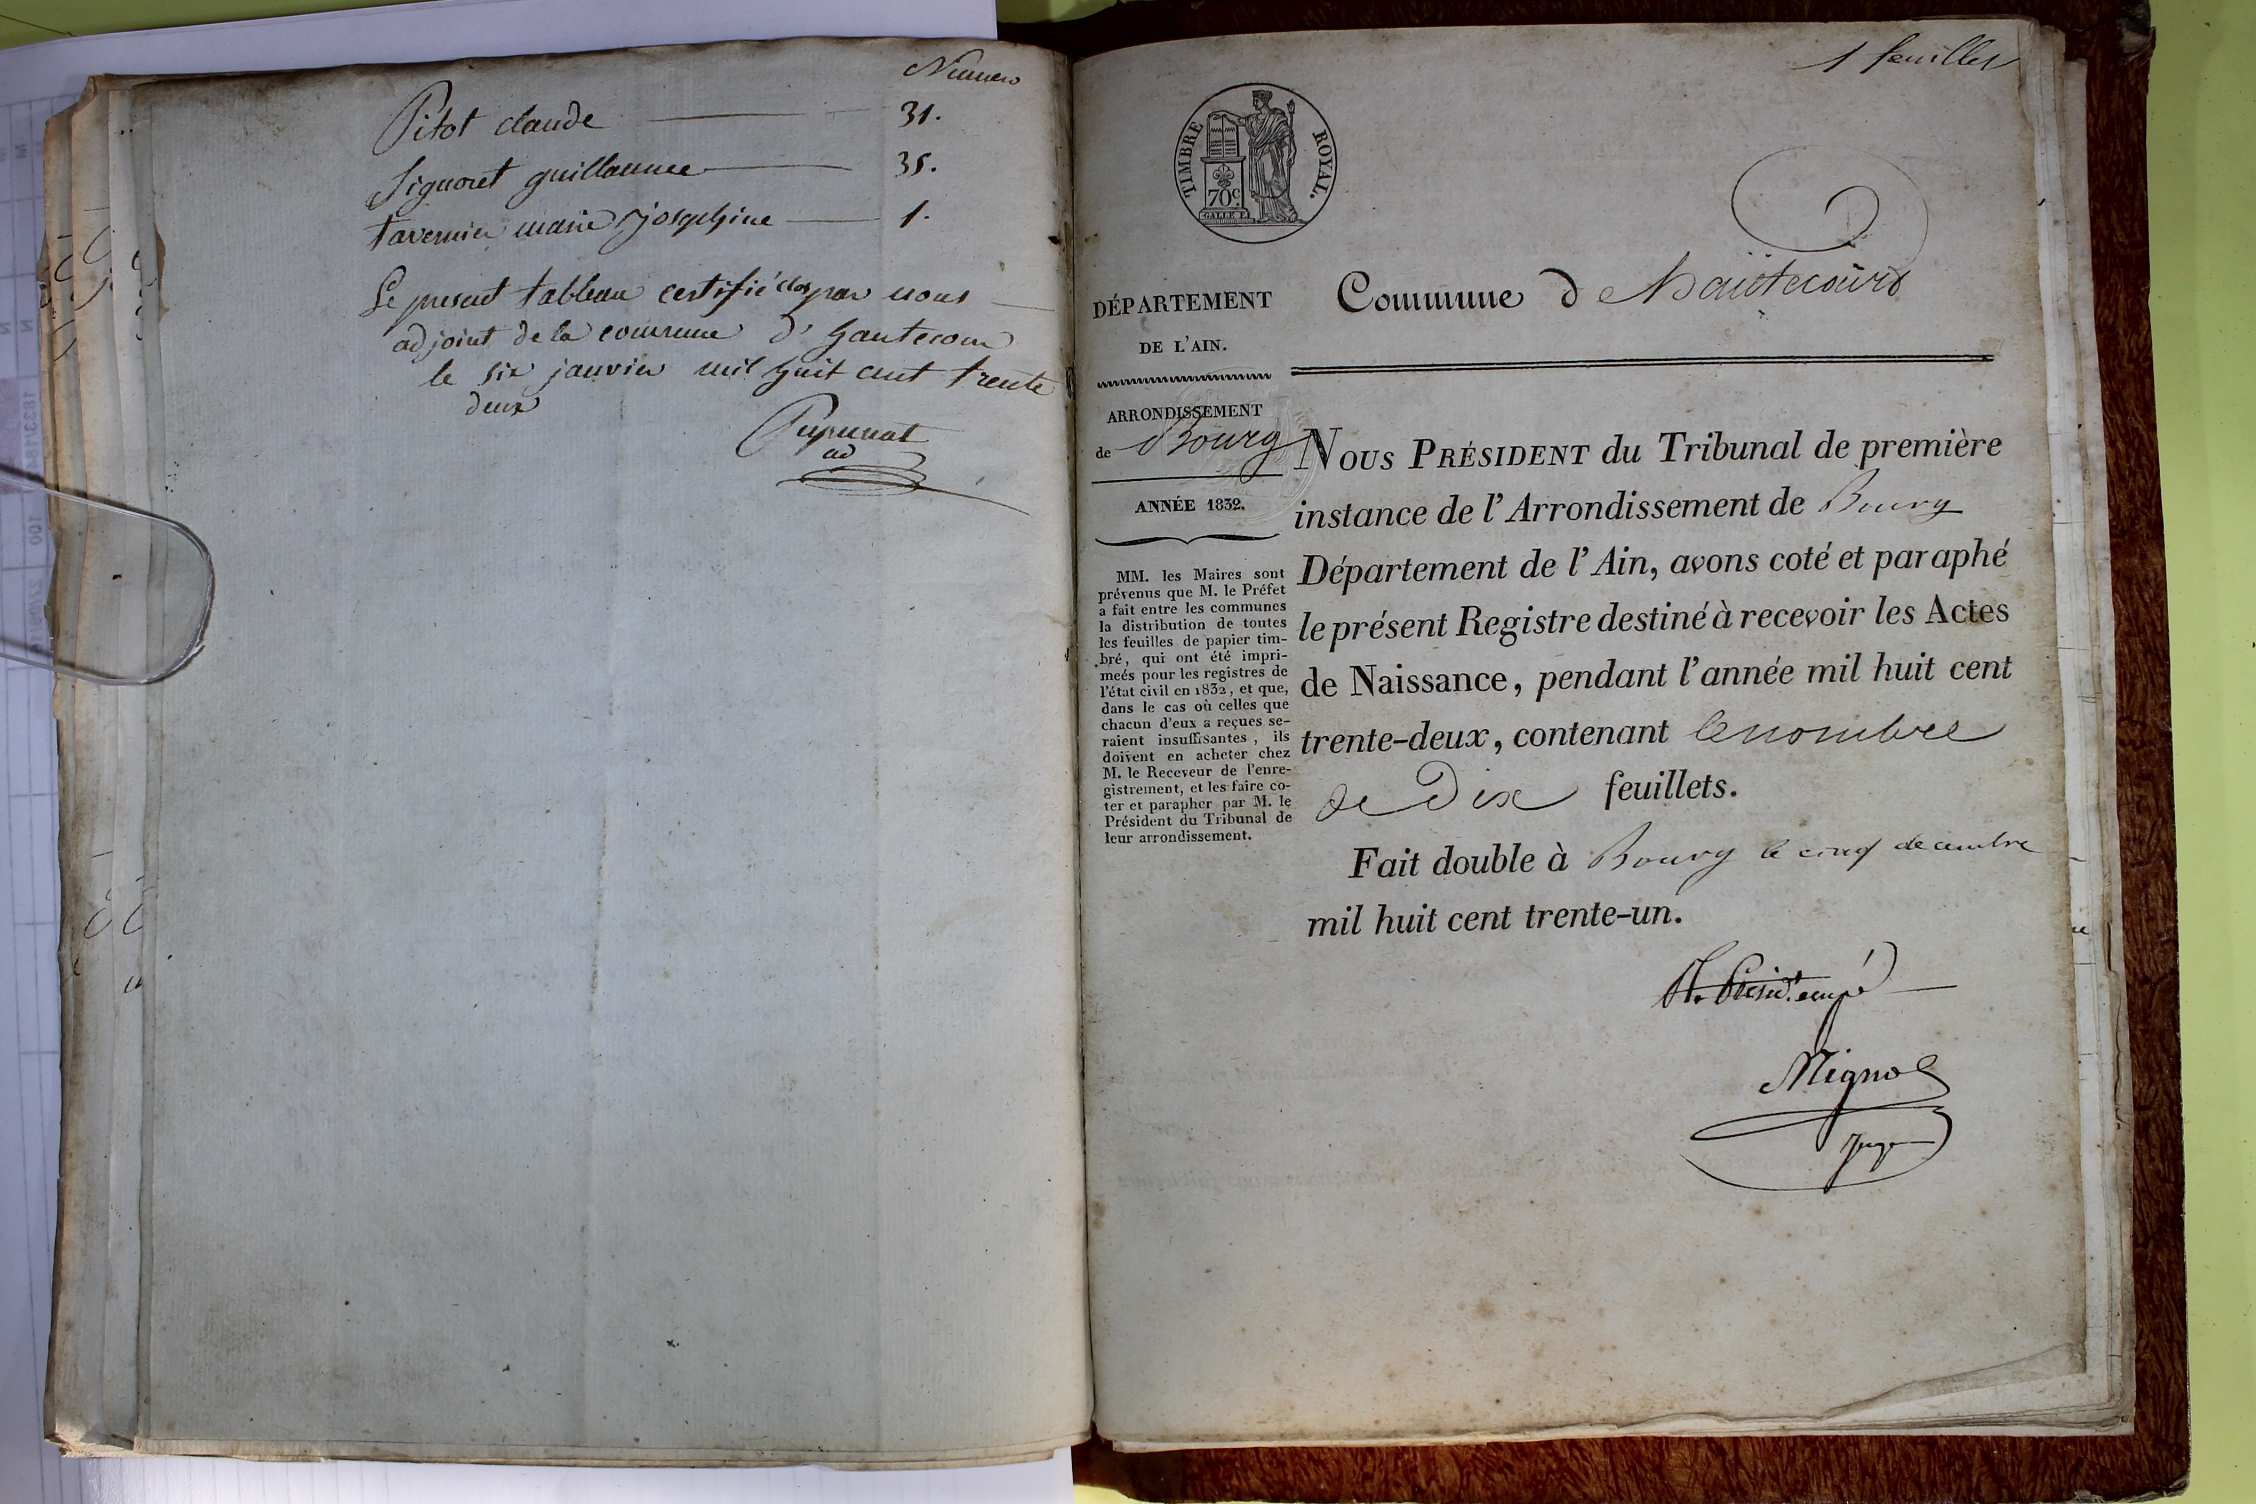 Numero
Pitot claude 31.
Signoret guillaume 35.
tavernier marie josephine 1.
Le present tableau certifié clos par nous
adjoint de la commune d'hautecour
le six janvier mil huit cent trente
deux
Pupunat
ad
1 feuillet
TIMBRE ROYAL.
70c.
DÉPARTEMENT
DE L'AIN.
Commune d hautecourt
ARRONDISSEMENT
de Bourg
ANNÉE 1832.
MM. les Maires sont
prévenus que M. le Préfet
a fait entre les communes
la distribution de toutes
les feuilles de papier tim-
bré, qui ont été impri-
meés pour les registres de
l'état civil en 1832, et que,
dans le cas où celles que
chacun d'eux a reçues se-
raient insuffisantes, ils
doivent en acheter chez
M. le Receveur de l'enre-
gistrement, et les faire co-
ter et parapher par M. le
Président du Tribunal de
leur arrondissement.
NOUS PRÉSIDENT du Tribunal de première
instance de l'Arrondissement de Bourg
Département de l'Ain, avons coté et paraphé
le présent Registre destiné à recevoir les Actes
de Naissance, pendant l'année mil huit cent
trente-deux, contenant le nombre
de Dix feuillets.
Fait double à Bourg le cinq decembre
mil huit cent trente-un.
Mignot
Juge